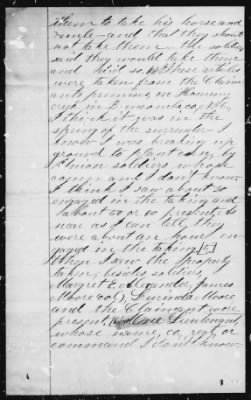 them to take his horse and
mule and that they should
not take them – the soldiers
said they would take them
and did so. These articles
were taken from the Claim-
ants premises on Hominy
creek in Buncombe co, N.C.
I think it was in the
spring of the surrender – I
know I was breaking up
ground to plant corn, by
Union soldiers whose
comp. and I don't know.
I think I saw about 20
engaged in the taking and
about 50 or 60 present. As
near as I can tell, they
were about an hour en-
gaged in the taking [5]
When I saw the property
taken, besides soldiers,
Margret E. Alexander, James
Moore (col), Lucinda Moore
and the Claimant were
present, one Lieutenant,
whose name, co, regt, or
command I don't know.